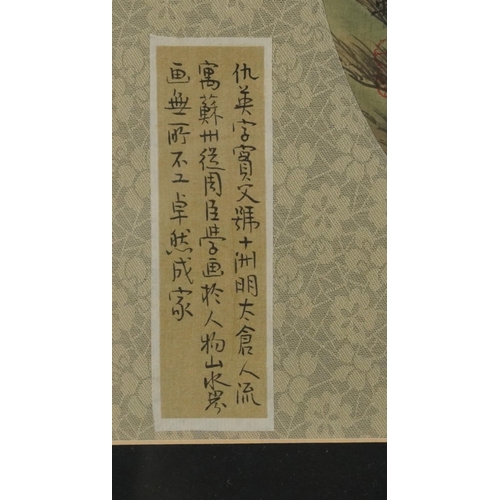 仇英字實父號十洲明太倉人流
寓蘇州從周臣學画於人物山水
画無所不工卓然成家